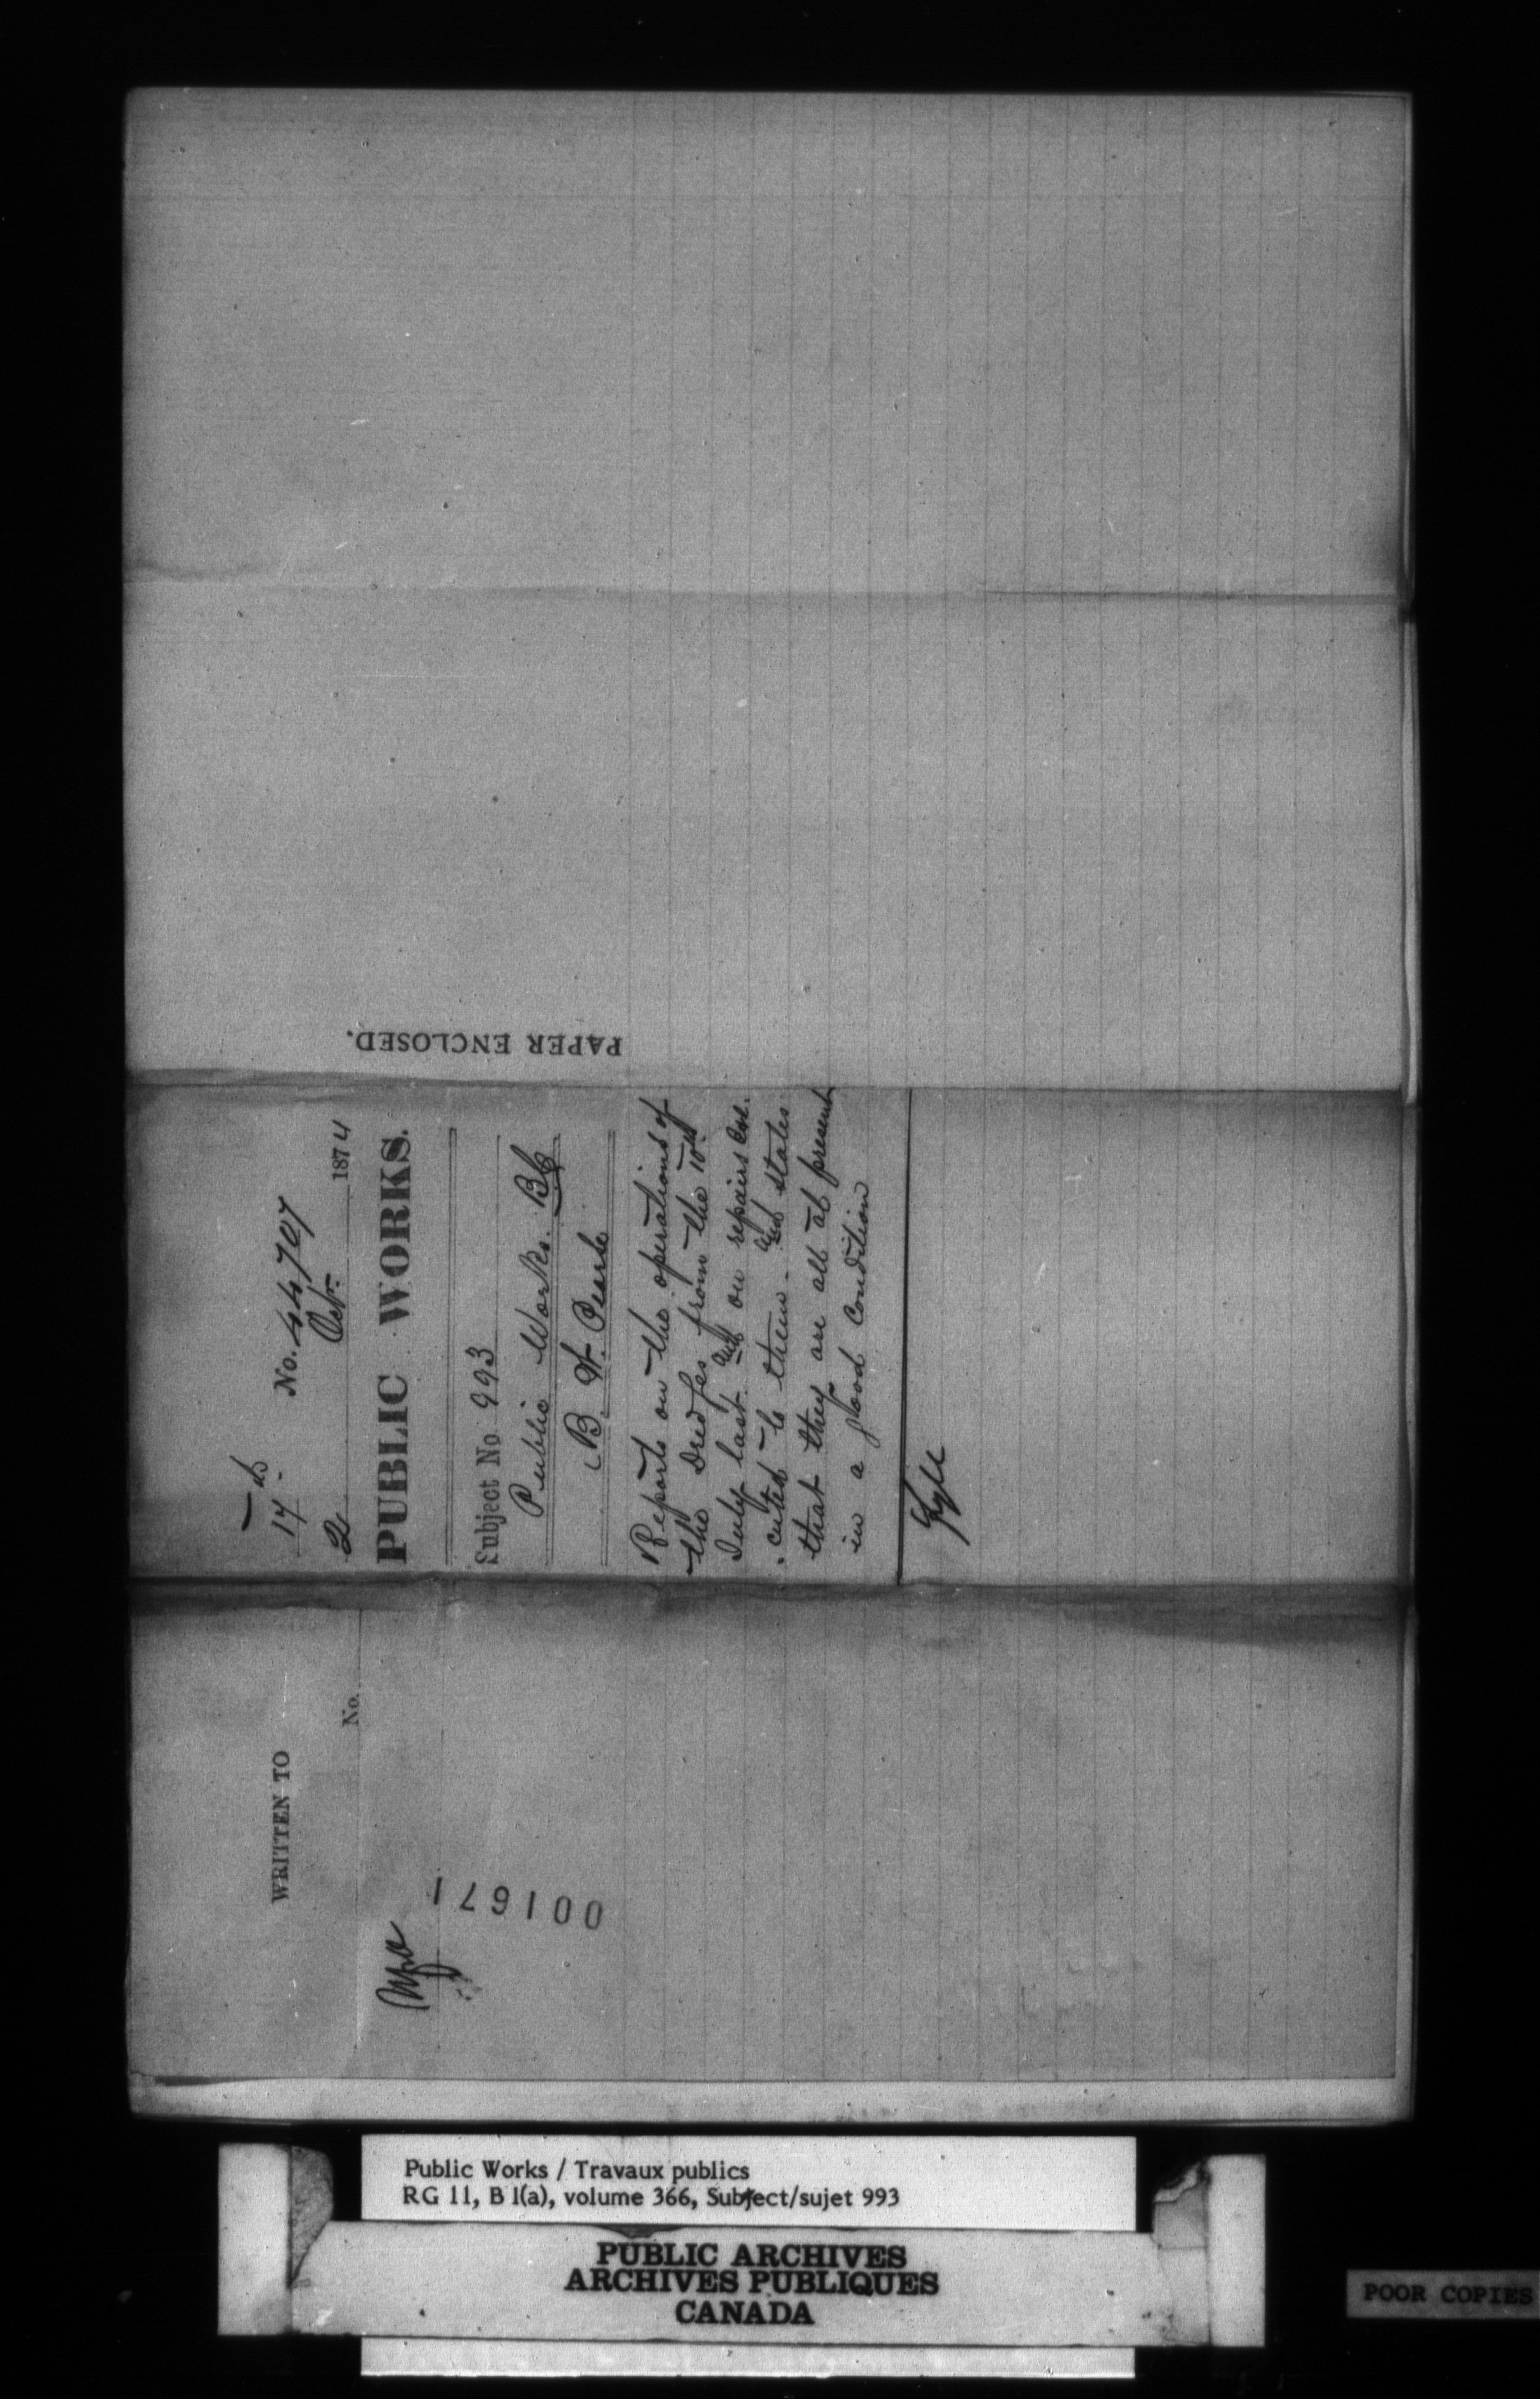 PAPER ENCLOSED.
17
No. 44707
2 Oct. 1874
PUBLIC WORKS.
Subject No 993
Public Works. BC
B. W. Pearse
Reports on the operations of
the Dredges from the 10th
July last and on repairs exe-
-cuted to them. and states
that they are all at present
in a good condition
Fyle
WRITTEN TO
No.
001671
Public Works / Travaux publics
RG 11, B 1(a), volume 366, Subject/sujet 993
PUBLIC ARCHIVES
ARCHIVES PUBLIQUES
CANADA
POOR COPIES